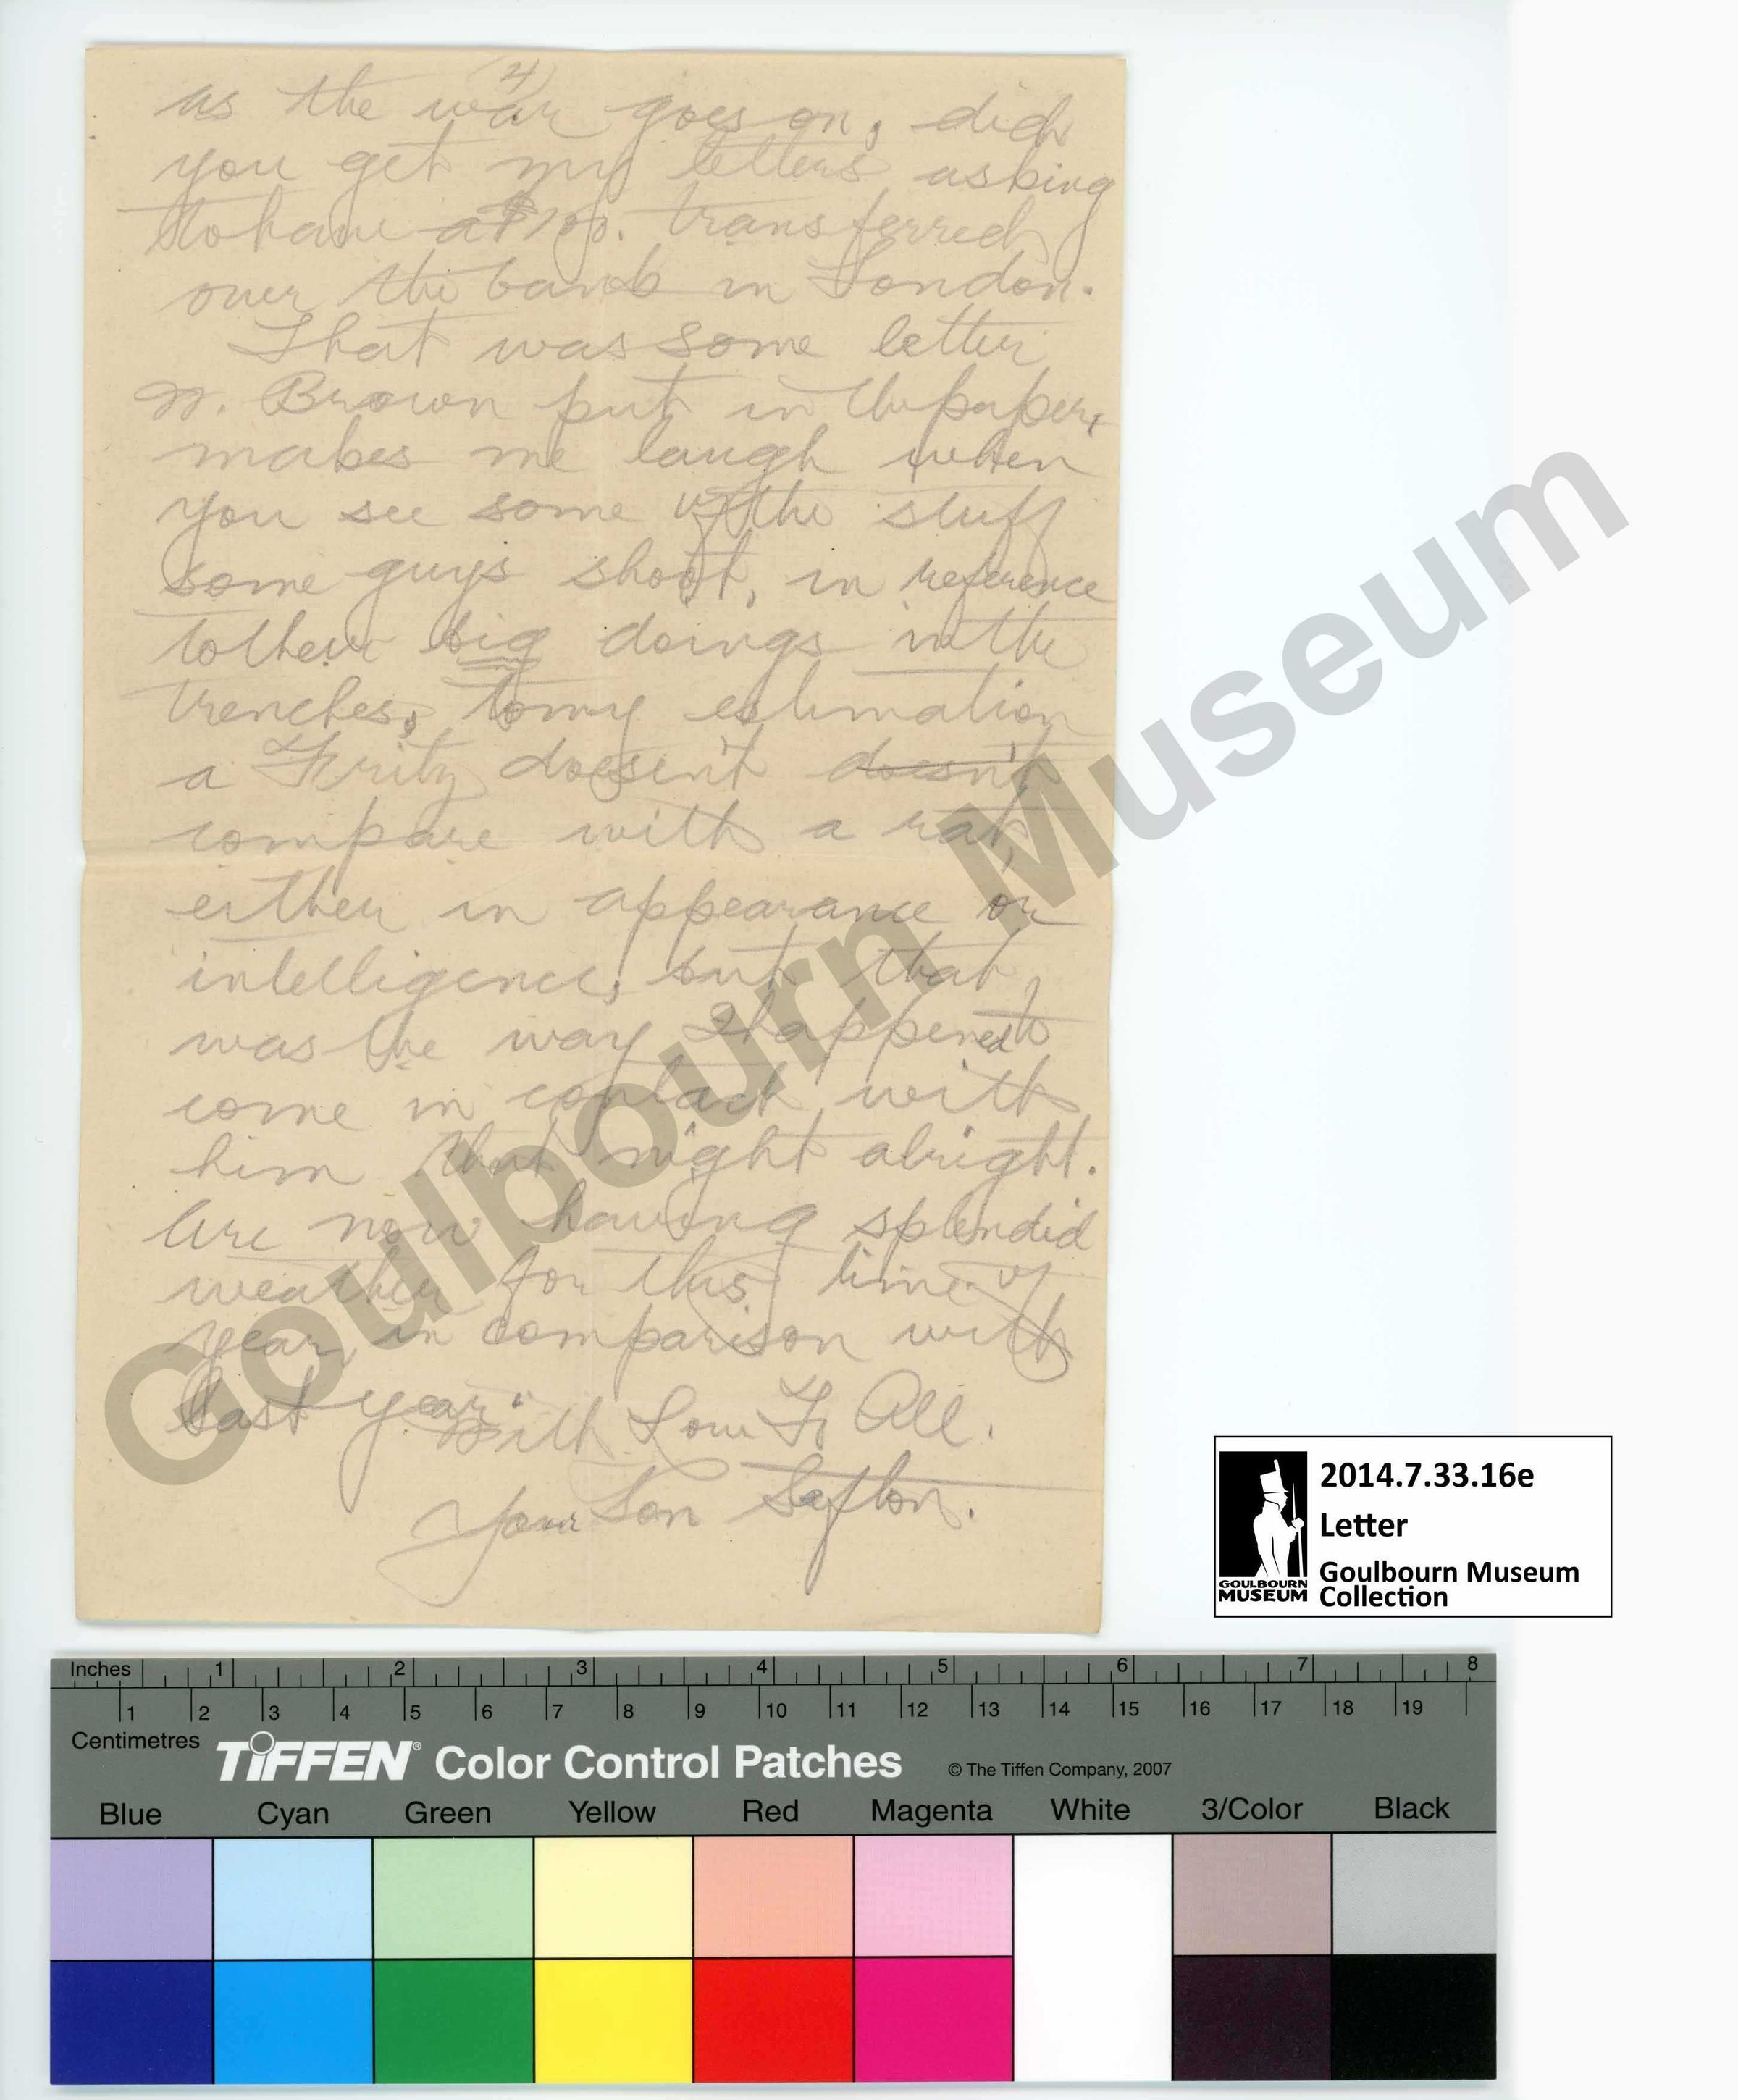 4)
as the war goes on, did
you get my letters asking
to have a $100. transferred
over the bank in London.
That was some letter
N. Brown put in the paper,
makes me laugh when
you see some of the stuff
some guys shoot, in reference
to their big doings in the
trenches, to my estimation
a Fritz doesen't doesn't
compare with a rat,
either in appearance or
intelligence, but that
was the way I happened to
come in contact with
him that night alright.
Are now having splendid
weather for this time of
year, in comparison with
last year.
With Love To All.
Your Son Sefton.
Goulbourn Museum
GOULBOURN
MUSEUM
2014.7.33.16e
Letter
Goulbourn Museum
Collection
Inches 1 2 3 4 5 6 7 8
1 2 3 4 5 6 7 8 9 10 11 12 13 14 15 16 17 18 19
Centimetres
TIFFEN® Color Control Patches © The Tiffen Company, 2007
Blue Cyan Green Yellow Red Magenta White 3/Color Black